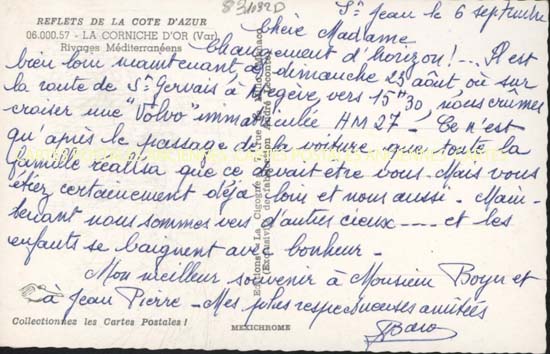 REFLETS DE LA COTE D'AZUR
06.000.57 - LA CORNICHE D'OR (Var)
Rivages Méditerranéens
83432D
St Jean le 6 septembre
Chère Madame
Changement d'horizon !... Il est
bien loin maintenant ce dimanche 23 août, où sur
la route de St Gervais à Megève, vers 15h30, nous crûmes
croiser une "Volvo" immatriculée HM 27 - Ce n'est
qu'après le passage de la voiture que toute la
famille réalisa que ce devait être vous - Mais vous
étiez certainement déjà loin et nous aussi - Main-
tenant nous sommes vers d'autres cieux ---- et les
enfants se baignent avec bonheur -
Mon meilleur souvenir à Monsieur et
à Jean Pierre - Mes plus respectueuses amitiés
Collectionnez les Cartes Postales !
MEXICHROME
Editions La Cigogne